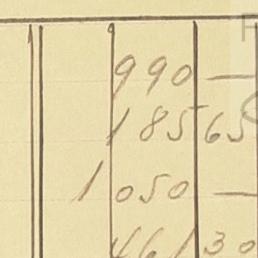 990 —
185 65
1 050 —
461 30